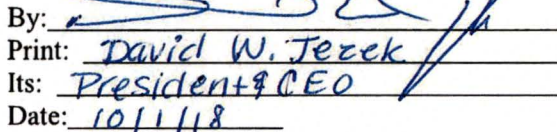 By:
Print: David W. Jezek
Its: President & CEO
Date: 10/1/18